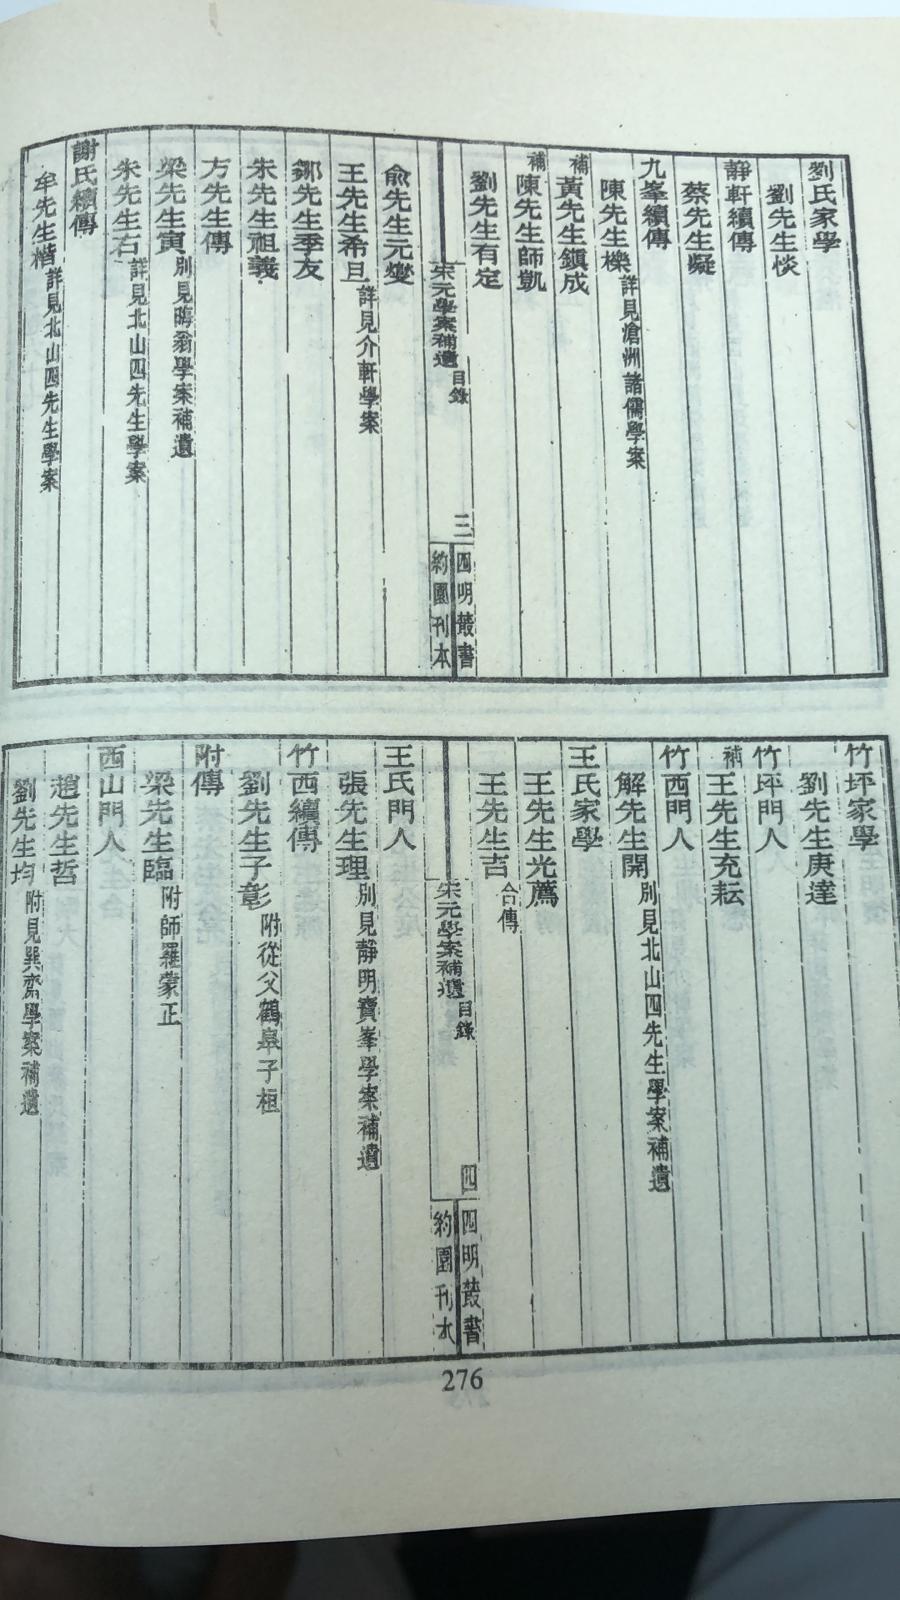 劉氏家學
劉先生惔
靜軒續傳
蔡先生凝
九峯續傳
陳先生櫟 詳見滄洲諸儒學案
補黃先生鎭成
補陳先生師凱
劉先生有定
宋元學案補遺 目錄 三 四明叢書 約園刊本
俞先生元燮
王先生希旦 詳見介軒學案
鄒先生季友
朱先生祖義
方先生傳
梁先生寅 別見晦翁學案補遺
朱先生右 詳見北山四先生學案
謝氏續傳
牟先生楷 詳見北山四先生學案
竹坪家學
劉先生庚達
竹坪門人
補王先生充耘
竹西門人
解先生開 別見北山四先生學案補遺
王氏家學
王先生光薦
王先生吉 合傳
宋元學案補遺 目錄 四 四明叢書 約園刊本
王氏門人
張先生理 別見靜明寶峯學案補遺
竹西續傳
劉先生子彰 附從父鶴皋子桓
附傳
梁先生臨 附師羅蒙正
西山門人
趙先生哲
劉先生均 附見巽齋學案補遺
276